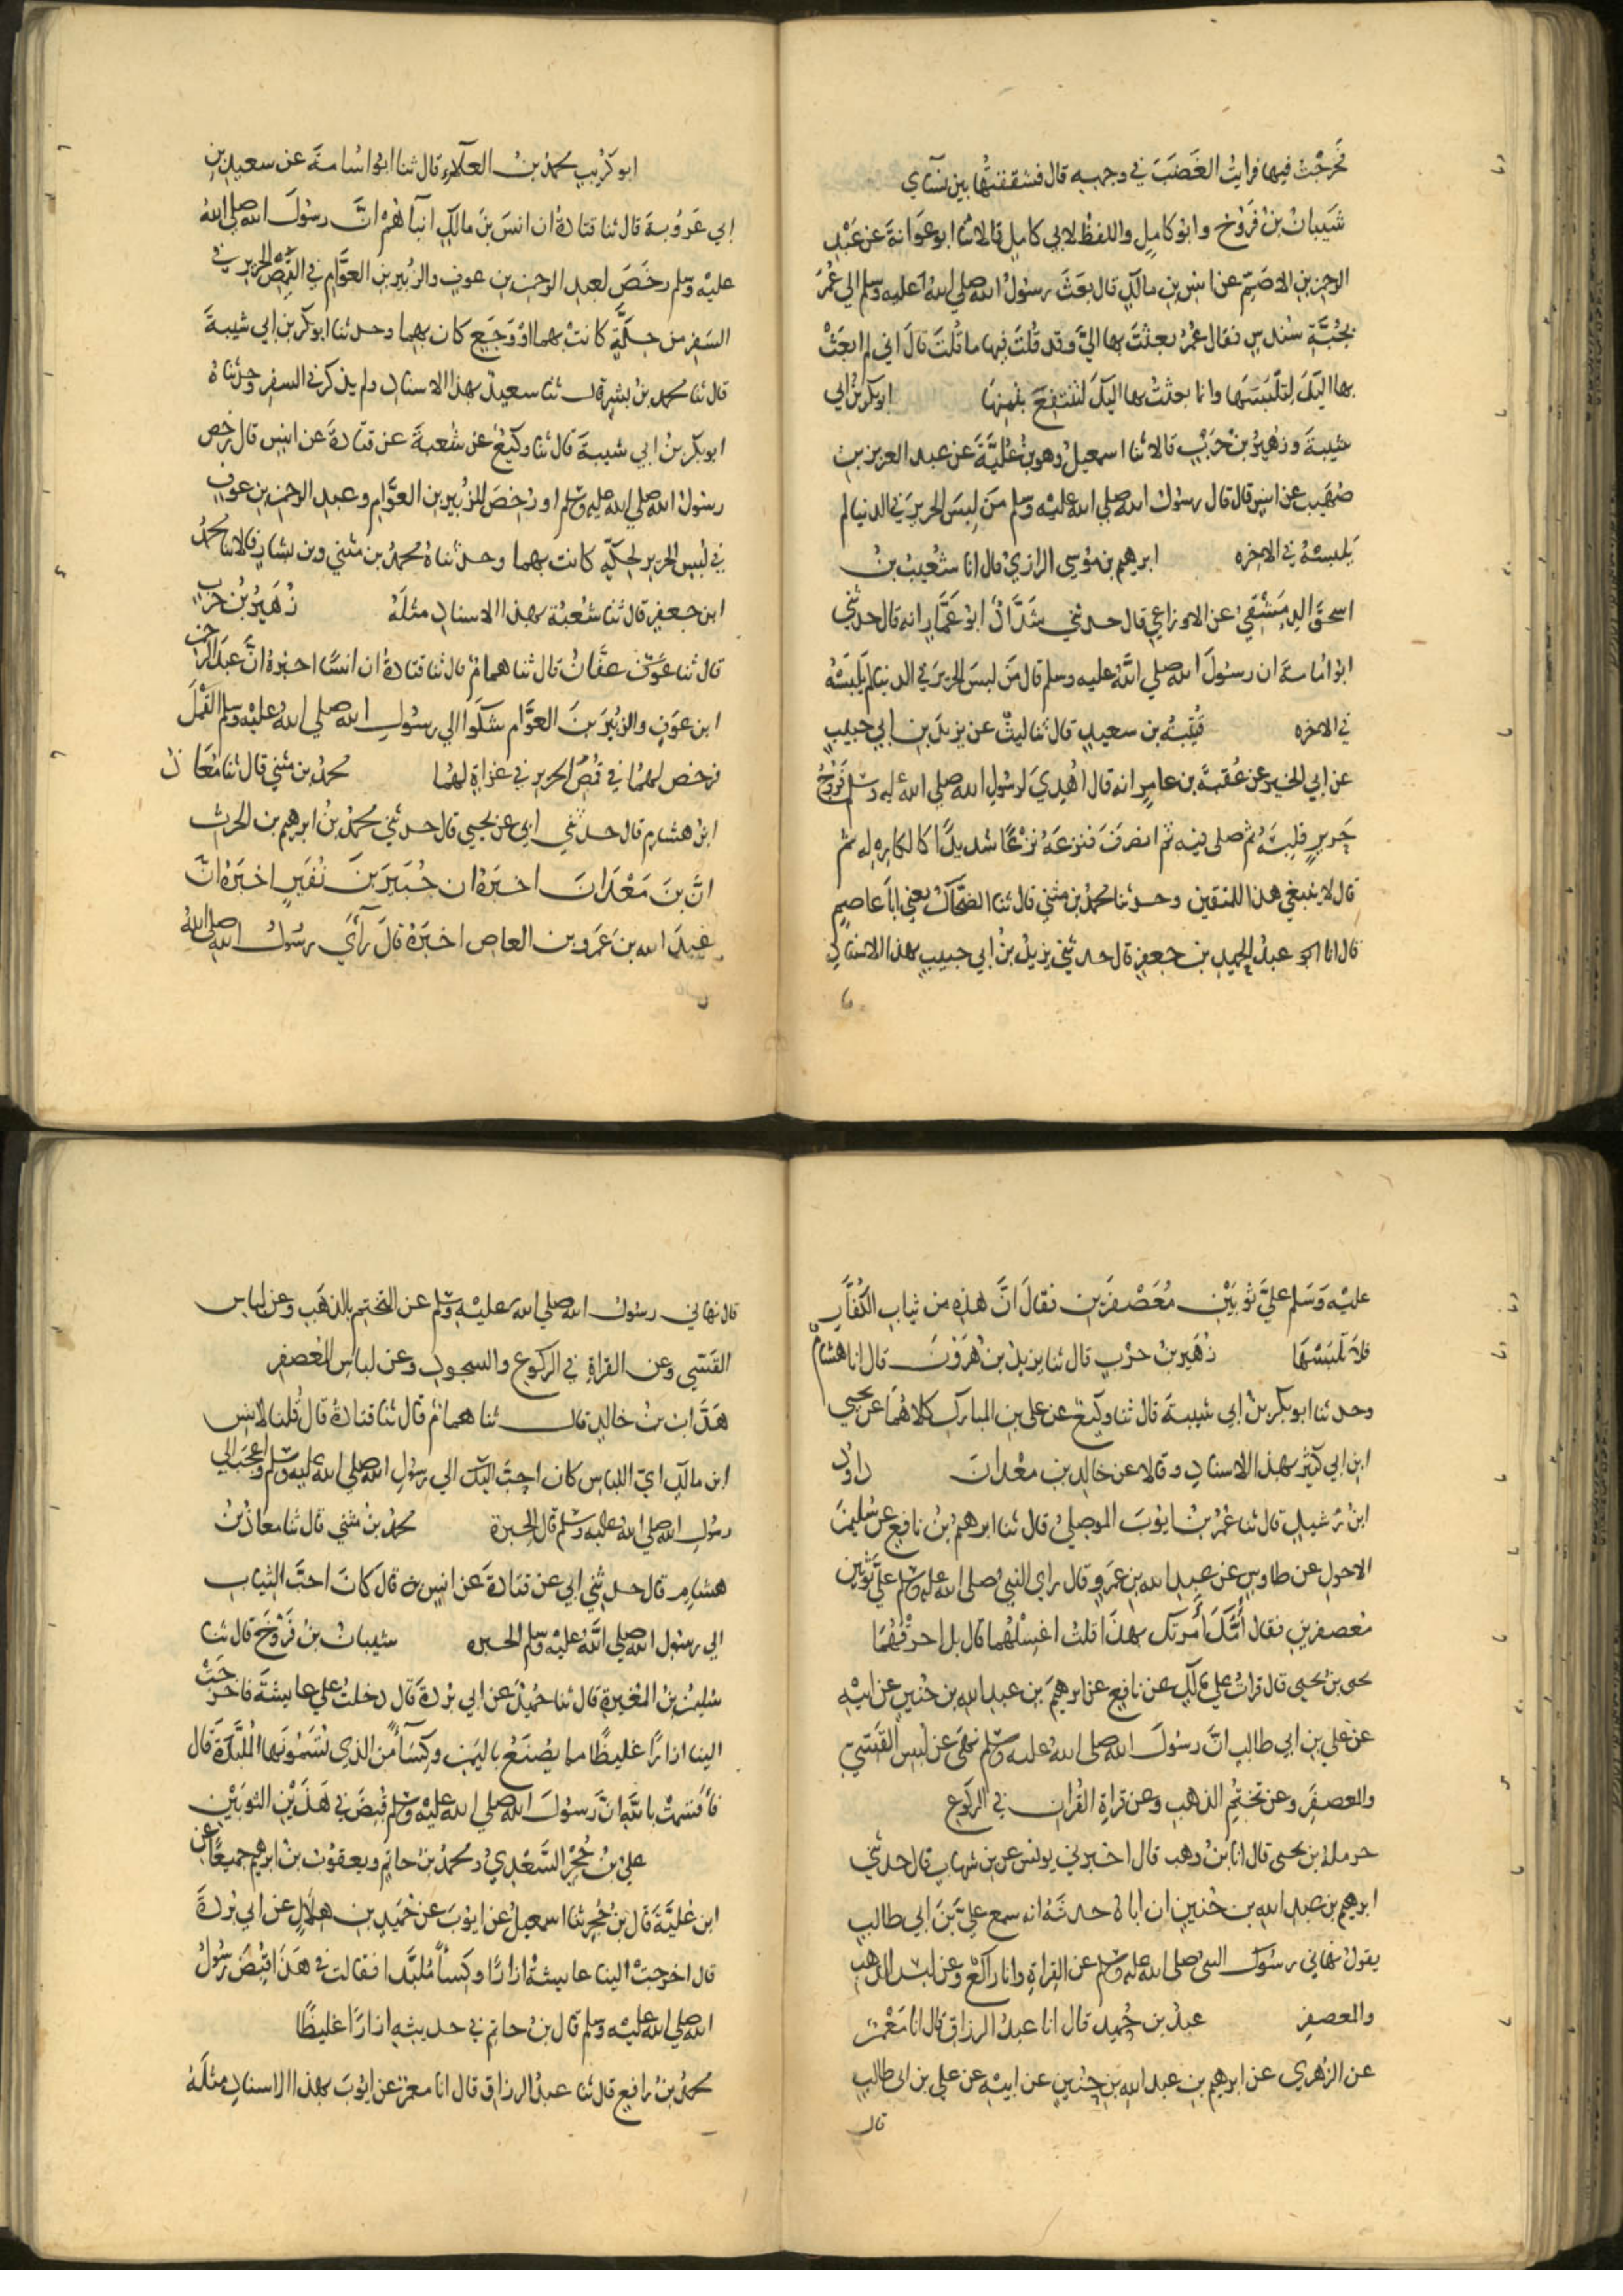 فخرجت فيها فرايت الغَضَبَ في وجهه قال فشققتُها بين نسآي
شَيبانُ بنُ فَرُّوخ وابو كاملٍ واللفظ لابي كاملٍ قالا ثنا ابو عَوَانةَ عن عَبْدِ
الرحمن بنِ الاصَمّ عن انسِ بنِ مالكٍ قال بعَثَ رسولُ الله صلي اللهُ عليه وسلم الي عُمَرَ
بجُبَّةِ سُندسٍ فقال عُمرُ بعثْتَ بها اليَّ وقد قُلتَ فيها ما قُلتَ قالَ اني لم ابعَثْ
بها اليكَ لِتَلْبَسَهَا وانما بعثتُ بها اليكَ لتنتفِعَ بثمنِها ابو بكر بنُ ابي
شيبة وزهيرُ بنُ حَرْبٍ قالا ثنا اسمعيلُ وهو بنُ عُلَيَّةَ عن عبد العزيز بن
صُهَيبٍ عن انسٍ قال قال رسولُ الله صلي الله عليْه وسلم مَن لبِسَ الحريرَ في الدنيا لم
يَلبسْهُ في الاخره ابرهيم بن مُوسى الرازيُّ قال انا شُعيبُ بنُ
اسحٰقَ الدِمَشْقِيُّ عن الاوزاعيِ قال حدثني شدَّادٌ ابو عَمَّارٍ انه قال حدثني
ابو اُمامةَ ان رسولَ الله صلي اللهُ عليه وسلم قال مَن لبسَ الحريرَ في الدنيا لم يَلبَسْهُ
في الاخره قُتيبةُ بن سعيدٍ قال ثنا ليثٌ عن يزيدَ بنِ ابي حبيبٍ
عن ابي الخيرِ عن عُقبةَ بن عامرٍ انه قال اُهْدِيَ لرسُولِ الله صلي الله عليه وسلم فَرُّوجُ
حَريرٍ فلبِسَهُ ثم صلى فيه ثم انصرَفَ فنزعَهُ نزْعًا شديدًا كالكاره له ثم
قال لا ينبغي هذا للمتقين وحدثنا محمدُ بن مثني قال ثنا الضَحّاكُ يعني اباَ عاصمٍ
قال انا عبدُ الحميد بن جعفرٍ قال حدثني يزيدُ بنُ ابي حبيبٍ بهذا الاسنادِ
ابو كُرَيبٍ محمدُ بنُ العلآءِ قال ثنا ابو اُسامةَ عن سعيدِ بنِ
ابي عَرُوبةَ قال ثنا قتادةُ ان انسَ بنَ مالكٍ انبأهُمْ انَّ رسُولَ الله صلي اللهُ
عليْه وسلم رخَصَ لعبد الرحمن بن عوفٍ والزُبيرِ بن العوَّام في القُمُصِ الحرير في
السَفر من حِكّةٍ كانتْ بهما اوْ وَجَعٍ كان بهما وحدثنا ابو بكر بن ابي شيبةَ
قال ثنا محمد بنُ بشرٍ قال ثنا سعيدٌ بهذا الاسناد ولم يذكر في السفر وحدثناهُ
ابو بكر بنُ ابي شيبةَ قال ثنا وكيعٌ عن شُعبةَ عن قتادةَ عن انسٍ قال رخص
رسُولُ الله صلي الله عليه وسلم او رُخِصَ للزُبيرِ بن العوَّام وعبد الرحمن بن عوفٍ
في لُبسِ الحريرِ لحِكةٍ كانت بهما وحدثناهُ محمدُ بن مثني وبن بشارٍ قالا ثنا محمدُ
ابن جعفرٍ قال ثنا شُعْبة بهذا الاسنادِ مثلَهُ زُهَيرُ بنُ حربٍ
قال ثنا عفَّانُ قال ثنا همامٌ قال ثنا قتادةُ ان انسًا اخبرهُ انَّ عبدَ الرحمن
ابن عوَفٍ والزبُيرَ بنَ العوَّام شكَوَا الي رسُولِ الله صلي اللهُ عليْه وسلم القَمْلَ
فرخص لهمُا في قُمُصِ الحرير في غزاةٍ لهمُا محمدُ بن مثني قال ثنا مُعَاذُ
ابنُ هشامٍ قال حدثني ابي عن يحيى قال حدثني محمدُ بنُ ابرهيم بن الحرث
انَّ بنَ مَعْدَانَ اخبرَهُ ان جُبَيرَ بنَ نُفَيرٍ اخبَرهُ انَّ
عبدَ الله بنَ عَمرو بن العاص اخبَرَهُ قالَ رَآي رسُولُ الله صلي اللهُ
عليْه وَسَلم عليَّ ثوبَيْنِ مُعَصْفَرَينِ فقالَ انَّ هذِهِ مِن ثيابِ الكُفّارِ
فلاَ تلْبَسْهَا زُهَيرُ بنُ حرْبٍ قال ثنا يزيدُ بنُ هَرُوْنَ قال انا هشام
وحدثنا ابو بكر بنُ ابي شيبةَ قال ثنا وكيعٌ عن علي بن المبارك كلاهُما عن يحيي
ابن ابي كثيرٍ بهذا الاسنادِ وقالا عن خالدِ بنِ معْدان داوُد
ابنُ رُشيدٍ قال ثنا عُمرُ بنُ ايوبَ الموصِليُّ قال ثنا ابرهيمُ بنُ نافعٍ عن سُليمنَ
الاحولِ عن طاوسٍ عن عبد الله بنِ عَمرٍو قال راي النبيُّ صلى الله عليه وسلم عليَّ ثوبَين
مُعصفَرينِ فقال أمُّكَ أمَرتَك بهذَا قلتُ اغسِلهُما قال بل احرِقهُمَا
يحيى بنُ يحيى قال قراتُ علي مالكٍ عن نافعٍ عن ابرهيمَ بن عبد الله بن حُنينٍ عن ابيْهِ
عن علي بنِ ابي طالبٍ انَّ رسُولَ الله صلى اللهُ عليه وسلم نهَى عن لُبسِ القَسّيّ
والمعصفَرِ وعن تختُّمِ الذهبِ وعن قراةِ القُرانِ في الركوع
حرملةُ بن يحيى قال انا بنُ وهب قال اخبرني يونس عن بن شهابٍ قال حدثني
ابرهيم بن عبد الله بن حُنينٍ ان اباهُ حدثَهُ انه سمع عليَّ بنَ ابي طالبٍ
يقولُ نهَاني رسُولُ النبيُ صلى الله عليه وسلم عن القراةِ وانا راكعٌ وعن لبس الذهب
والمعصفر عبدُ بن حُميد قال انا عبدُ الرزاق قال انا مَعْمرٌ
عن الزهري عن ابرهيم بنِ عبد الله بن حُنينٍ عن ابيْهِ عن علي بن ابي طالبٍ
قال
قال نهاني رسُولُ الله صلي الله عليْهِ وسلم عن التختمِ بالذهَبِ وعن لباسِ
القَسّيِ وعن القراةِ في الركوع والسجودِ وعن لباسِ المُعصفر
هَدَّابُ بنُ خالدٍ قال ثنا همامٌ قال ثنا قتادةُ قال قُلنا لانسِ
ابن مالكٍ ايّ اللباسِ كان احبَّ اليك الي رسُولِ الله صلي الله عليه وسلم واعجبَ الي
رسُولِ الله صلي اللهُ عليه وسلم قال الحِبرة محمدُ بنُ مثني قال ثنا معاذُ بنُ
هشامٍ قال حدثني ابي عن قتادةَ عن انسٍ قال كانَ احبَّ الثيابِ
الي رسُول الله صلي اللهُ عليْه وسلم الحبره شيبانُ بنُ فَرُّوخَ قال ثنا
سليمنُ بنُ المُغيرةِ قال ثنا حُميدٌ عن ابي بُردَةَ قال دخلتُ علي عايشةَ فاخرجَتْ
الينا ازارًا غليظًا مما يُصْنَعُ باليمَن وكِسَآءً من الذي تُسَمُّونَها المُلَبَّدَةَ قال
فأقسَمتْ بالله انَّ رسُولَ الله صلي الله عليْه وسلم قُبِضَ في هَذَيْنِ الثوبَيْنِ
عليُّ بنُ حُجْرٍ السَّعْدِيُّ ومحمدُ بنُ حاتمٍ ويعقوبُ بنُ ابرهيم جميعًا عن
ابن عُليَّةَ قال بنُ حُجرٍ ثنا اسمعيلُ عن ايوبَ عن حُمَيدِ بن هِلالٍ عن ابي بُردةَ
قال اخرجتْ الينا عايشةُ ازارًا وكِسَاً مُلَبَّدا فقالت في هَذَا قُبِضَ رسُولُ
الله صلي الله عليْه وسلم قال بنُ حاتمٍ في حديثِهِ ازارًا غليظًا
محمدُ بنُ رافعٍ قال ثنا عبدُ الرزاق قال انا معمرٌ عن ايوبَ بهذا الاسنادِ مثلَهُ